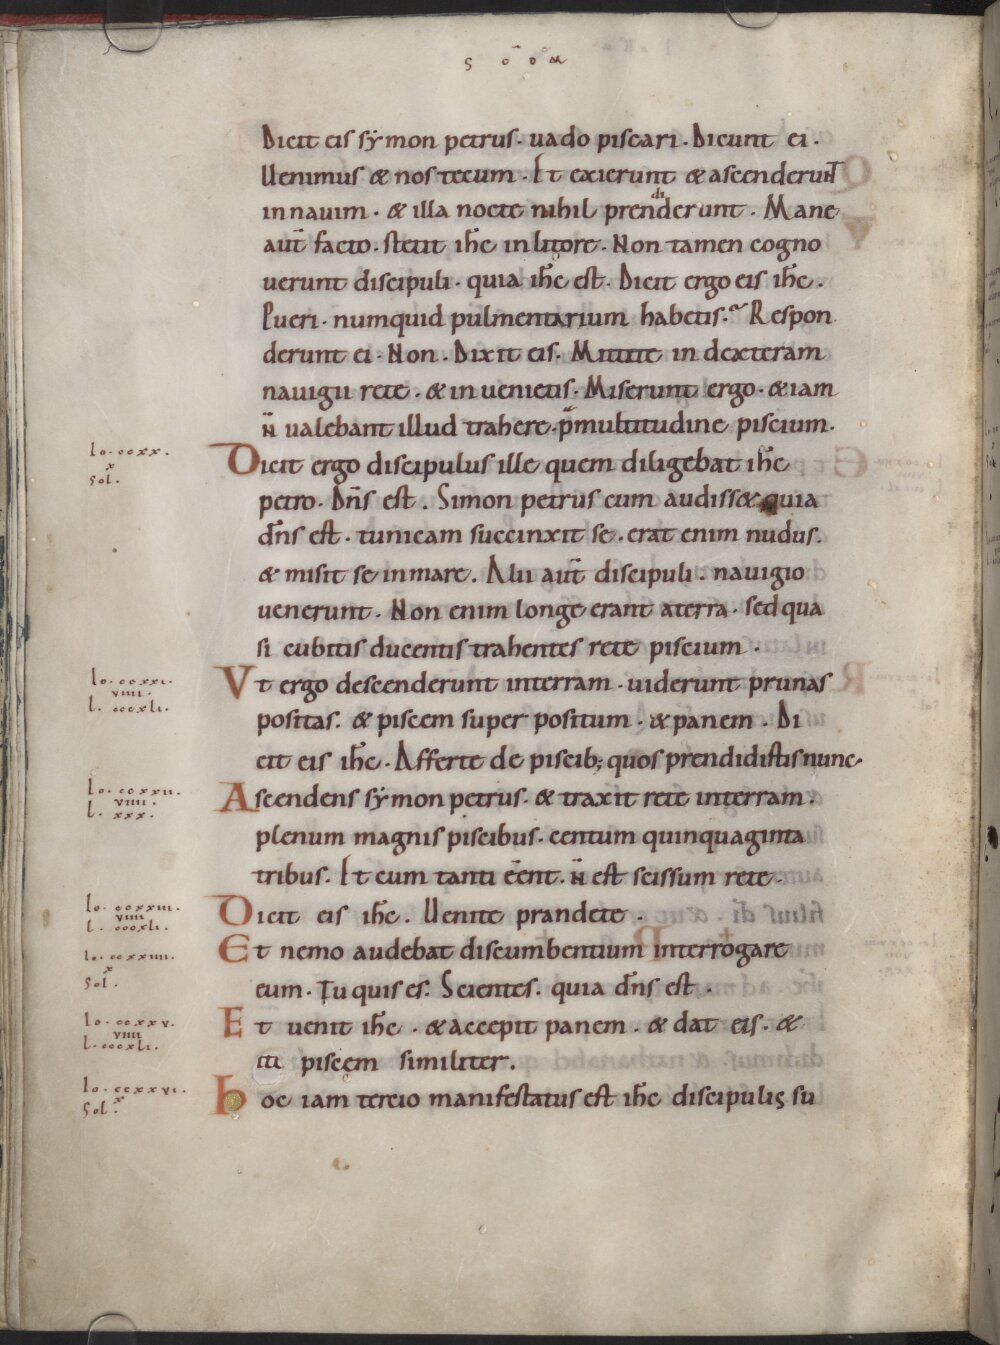 Dicit eis sẏmon petrus · uado piscari · Dicunt ei ·
Uenimus & nos tecum · Et exierunt & ascenderunt
in nauim · & illa nocte nihil prendiderunt · Mane
aut̄ facto · stetit ih̄c in litore · Non tamen cogno
uerunt discipuli · quia ih̄c est · Dicit ergo eis ih̄c ·
Pueri · numquid pulmentarium habetis · Respon
derunt ei · Non · Dixit eis · Mittite in dexteram
nauigii rete · & inuenietis · Miserunt ergo · & iam
n̄ ualebant illud trahere · p̄ multitudine piscium ·
lo · ccxx ·
x
sol ·
Dicit ergo discipulus ille quem diligebat ih̄c
petro · Dn̄s est · Simon petrus cum audiss& quia
dn̄s est · tunicam succinxit se · erat enim nudus ·
& misit se in mare · Alii aut̄ discipuli · nauigio
uenerunt · Non enim longe erant a terra · sed qua
si cubitis ducentis trahentes rete piscium ·
lo · ccxxi ·
viiii ·
l · cccxli ·
Vt ergo descenderunt in terram · uiderunt prunas
positas · & piscem super positum · & panem · Di
cit eis ih̄c · Afferte de piscib; quos prendidistis nunc ·
lo · ccxxii ·
viiii ·
l · xxx ·
Ascendens sẏmon petrus · & traxit rete in terram ·
plenum magnis piscibus · centum quinquaginta
tribus · Et cum tanti eēnt · n̄ est scissum rete ·
lo · ccxxiii ·
viiii
l · cccxli ·
Dicit eis ih̄c · Uenite prandete ·
lo · ccxxiiii ·
x
sol ·
Et nemo audebat discumbentium interrogare
eum · Tu quis es · Scientes · quia dn̄s est ·
lo · ccxxv ·
viiii
l · cccxli ·
Et uenit ih̄c · & accepit panem · & dat eis · &
piscem similiter ·
lo · ccxxvi ·
x
sol ·
hoc iam tercio manifestatus est ih̄c discipulis su